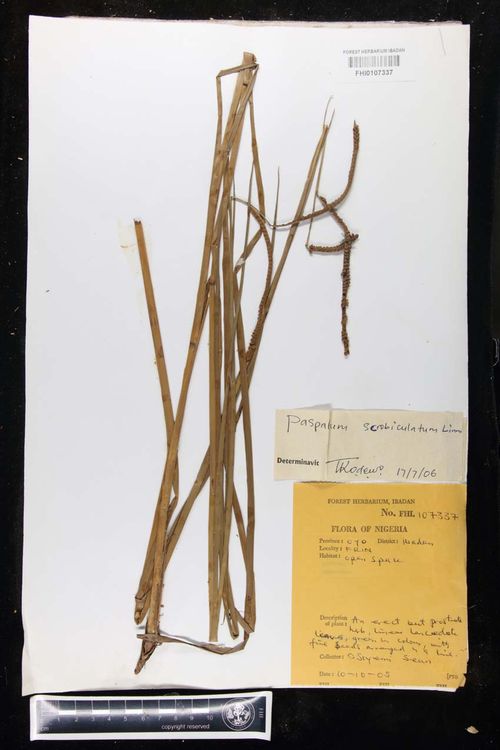 FOREST HERBARIUM IBADAN
FHI0107337
Paspalum scrobiculatum Linn
Determinavit
17/7/06
FOREST HERBARIUM, IBADAN
No. FHI. 107337
FLORA OF NIGERIA
Province: OYO District: Ibadan
Locality: FRIN
Habitat: open space
Description of plant: An erect but prostrate
herb, linear lanceolate
leaves, green in colour with
fine seeds arranged
Collector:
Date: 10-10-05
copyright reserved
FHI